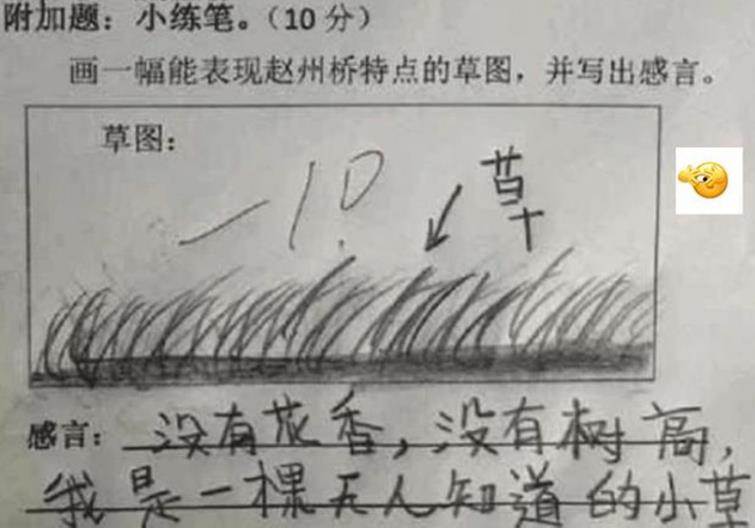 附加题：小练笔。（10 分）
画一幅能表现赵州桥特点的草图，并写出感言。
草图：
-10
草
感言：没有花香，没有树高，
我是一棵无人知道的小草